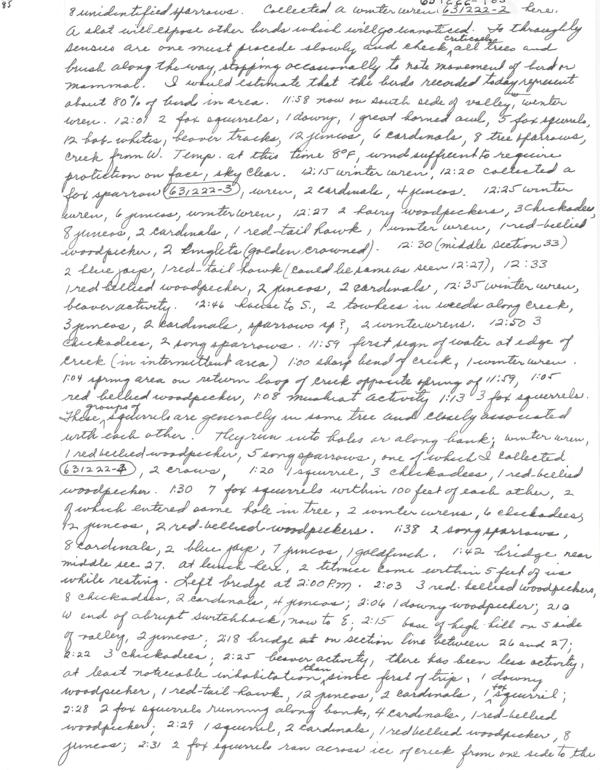 85
8 unidentified sparrows. Collected a winter wren 631222-2 here.
A shot will expose other birds which will go unnoticed. To throughly
census are one must procede slowly and check critically all trees and
brush along the way, stopping occasionally to note movement of bird or
mammal. I would estimate that the birds recorded today represent
about 80% of birds in area. 11:58 now on south side of valley, winter
wren. 12:01 2 fox squirrels, 1 downy, 1 great horned owl, 5 fox squirrels,
12 bob-whites, beaver tracks, 12 juncos, 6 cardinals, 8 tree sparrows,
creek from W. Temp. at this time 8°F, wind sufficient to require
protection on face, sky clear. 12:15 winter wren, 12:20 collected a
fox sparrow 631222-3, wren, 2 cardinals, 4 juncos. 12:25 winter
wren, 6 juncos, winter wren, 12:27 2 hairy woodpeckers, 3 chickadees,
8 juncos, 2 cardinals, 1 red-tail hawk, 1 winter wren, 1 red-bellied
woodpecker, 2 kinglets (golden crowned). 12:30 (middle section 33)
2 blue jays, 1 red-tail hawk (could be same as seen 12:27), 12:33
1 red bellied woodpecker, 2 juncos, 2 cardinals, 12:35 winter wren,
beaver activity. 12:46 house to S., 2 towhees in weeds along creek,
3 juncos, 2 cardinals, sparrow sp?, 2 winter wrens. 12:50 3
chickadees, 2 song sparrows. 11:59 first sign of water at edge of
creek (in intermittent area) 1:00 sharp bend of creek, 1 winter wren.
1:04 spring area on return loop of creek opposite spring of 11:59, 1:05
red bellied woodpecker, 1:08 muskrat activity 1:13 3 fox squirrels.
These groups of squirrels are generally in same tree and closely associated
with each other. They run into holes or along bank; winter wren,
1 red bellied woodpecker, 5 song sparrows, one of which I collected
631222-4, 2 crows, 1:20 1 squirrel, 3 chickadees, 1 red-bellied
woodpecker. 1:30 7 fox squirrels within 100 feet of each other, 2
of which entered same hole in tree, 2 winter wrens, 6 chickadees,
12 juncos, 2 red-bellied woodpeckers. 1:38 2 song sparrows,
8 cardinals, 2 blue jays, 7 juncos, 1 goldfinch. 1:42 bridge near
middle sec. 27. at lunch here, 2 titmice came within 5 feet of us
while resting. Left bridge at 2:00 P.M. 2:03 3 red-bellied woodpeckers,
8 chickadees, 2 cardinals, 4 juncos; 2:06 1 downy woodpecker; 2:12
W end of abrupt switchback, now to E; 2:15 base of high hill on S side
of valley, 2 juncos; 2:18 bridge at on section line between 26 and 27;
2:22 3 chickadees; 2:25 beaver activity, there has been less activity,
at least noticeable inhabitation than since first of trip, 1 downy
woodpecker, 1 red-tail hawk, 12 juncos, 2 cardinals, 1 fox squirril;
2:28 2 fox squirrels running along bank, 4 cardinals, 1 red-bellied
woodpecker; 2:29 1 squirrel, 2 cardinals, 1 red bellied woodpecker, 8
juncos; 2:31 2 fox squirrels ran across ice of creek from one side to the